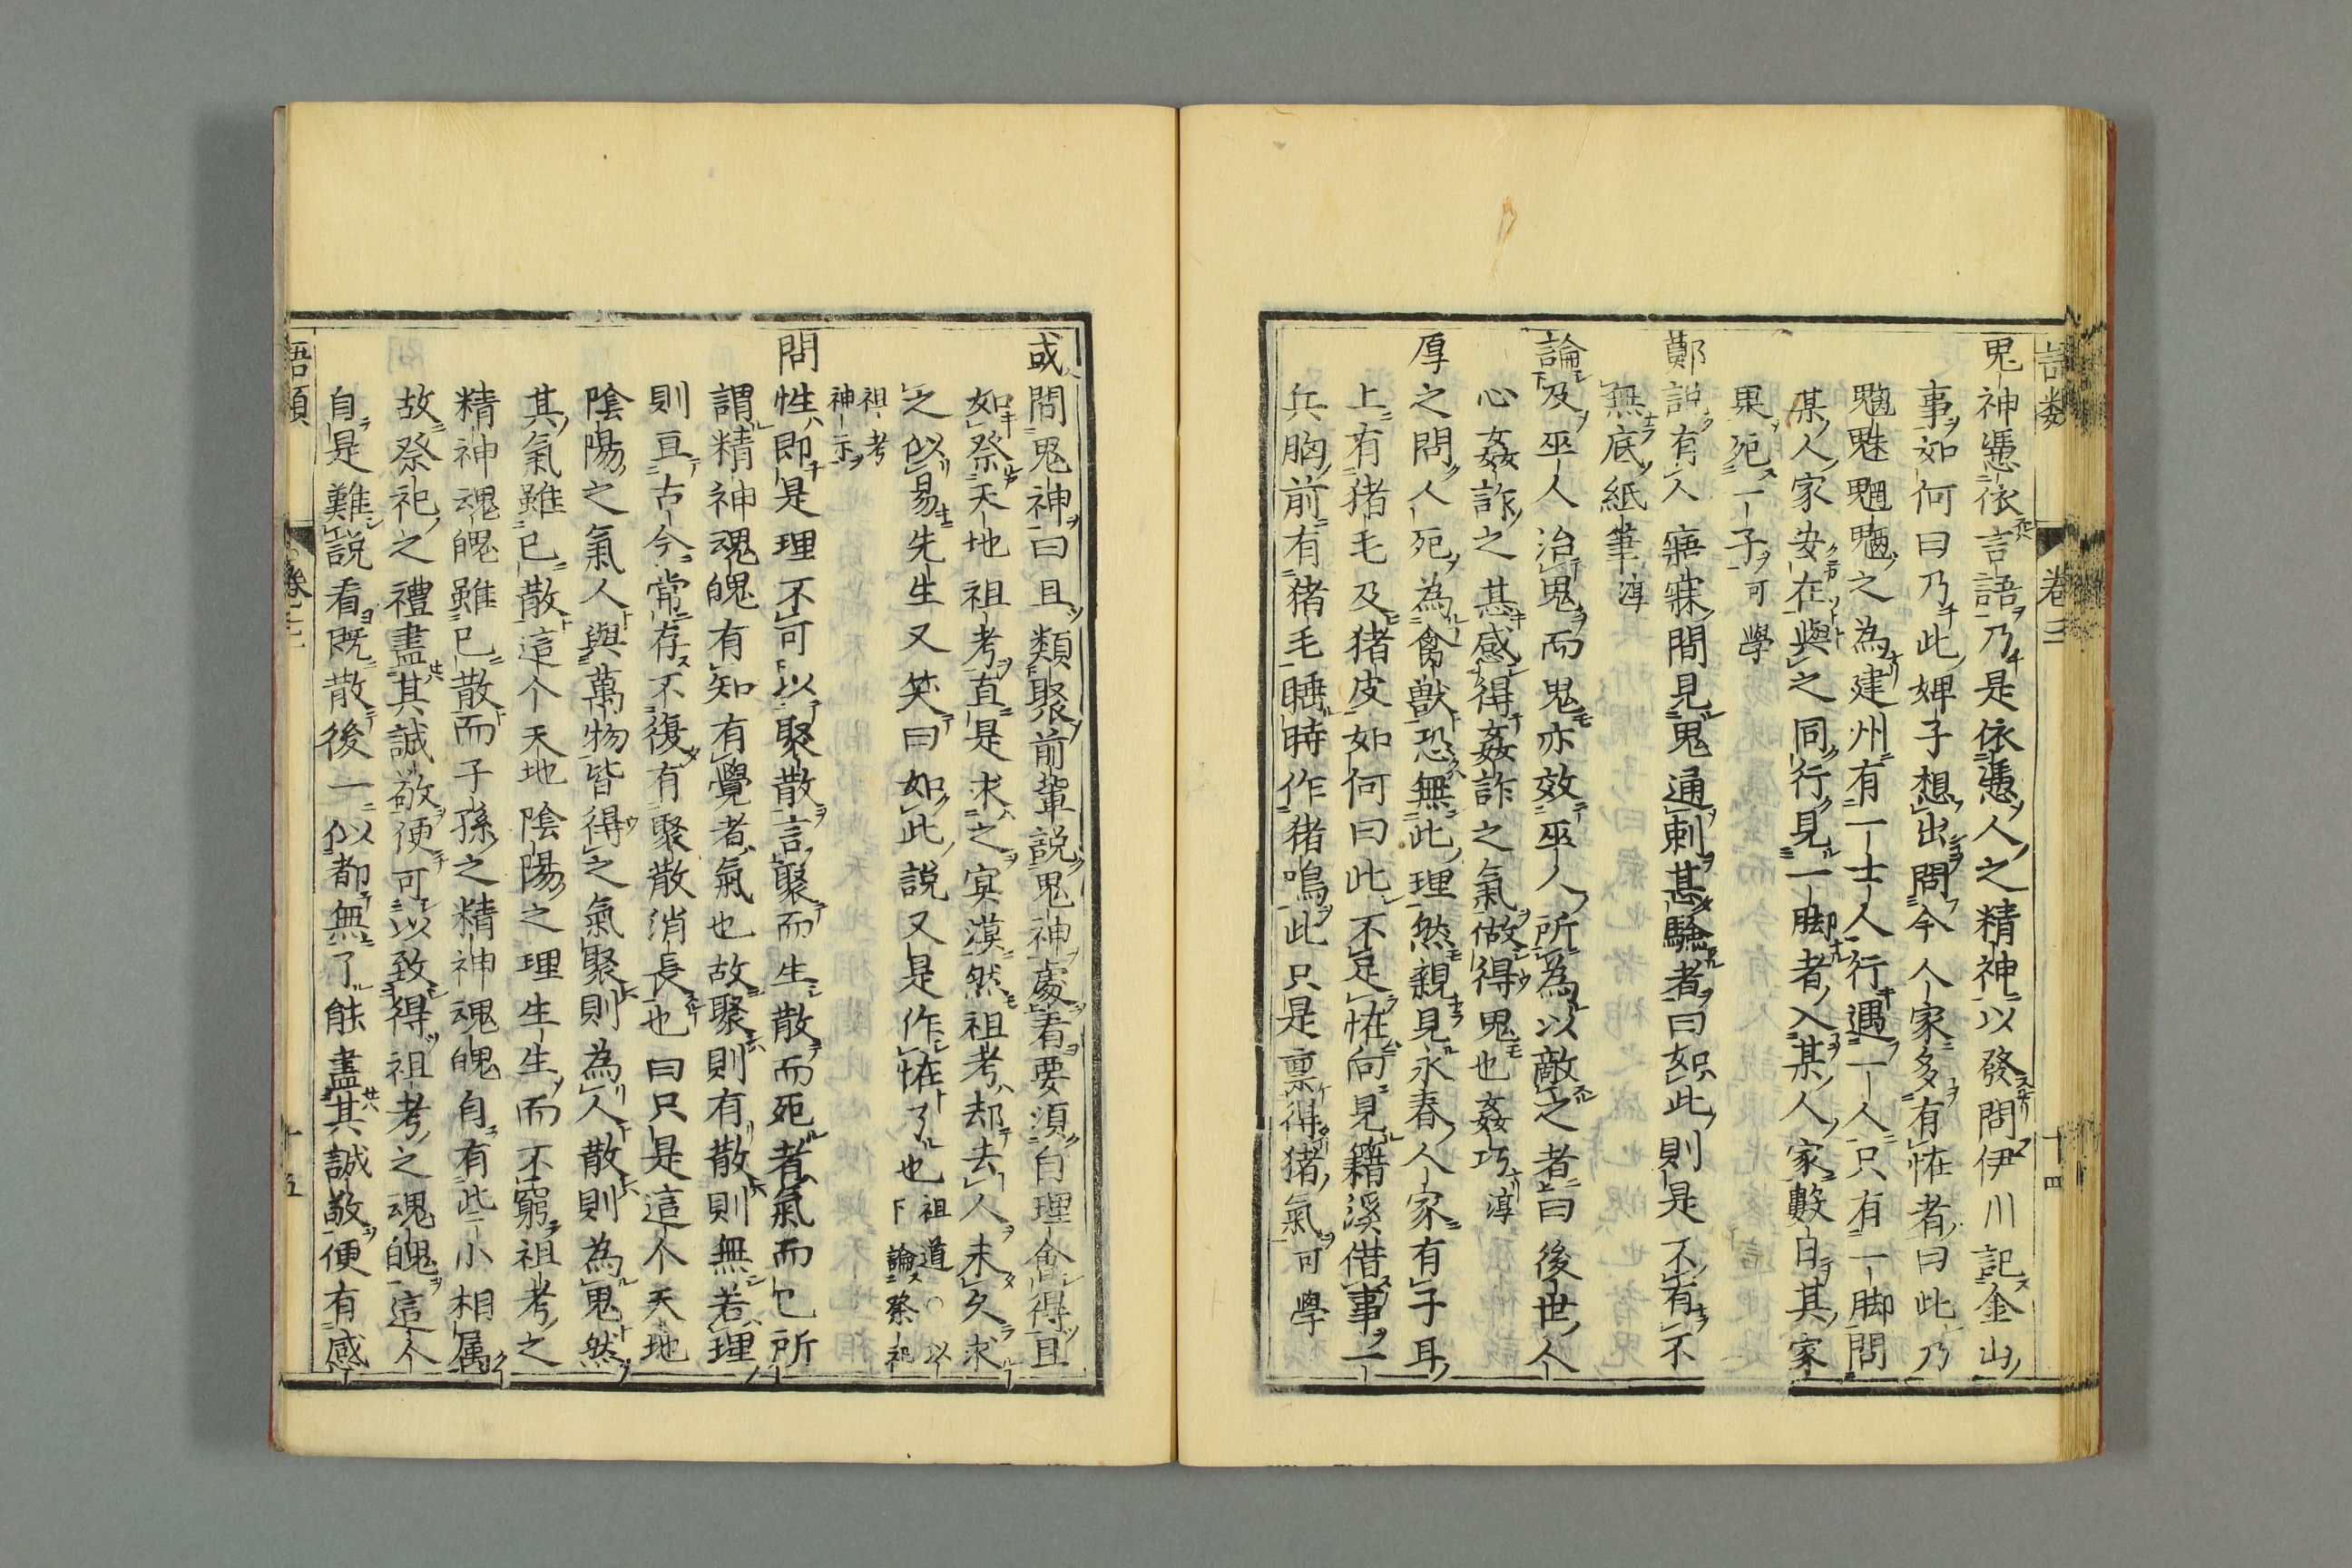 語類
卷三
十四
鬼神憑依言語乃是依憑人之精神以發問伊川記金山
事如何曰乃此婢子想出問今人家多有怪者曰此乃
魑魅魍魎之為建州有一士人行遇一人只有一脚問
某人家安在與之同行見一脚者入某人家數日其家
果死一子可學
鄭説有人寤寐間見鬼通刺甚驗者曰如此則是不有不
無底紙筆淳
論及巫人治鬼而鬼亦效巫人所為以敵之者曰後世人
心姦詐之甚感得姦詐之氣做得鬼也姦巧淳
厚之問人死為禽獸恐無此理然親見永春人家有子耳
上有猪毛及猪皮如何曰此不足怪向見籍溪借事一
兵胸前有猪毛睡時作猪鳴此只是禀得猪氣可學
或問鬼神曰且類聚前輩説鬼神處看要須自理會得且
如祭天地祖考直是求之冥漠然祖考却去人未久求
之似易先生又笑曰如此説又是作怪了也祖道○以下論祭祀
祖考神示
問性即是理不可以聚散言聚而生散而死者氣而已所
謂精神魂魄有知有覺者氣也故聚則有散則無若理
則亘古今常存不復有聚散消長也曰只是這个天地
陰陽之氣人與萬物皆得之氣聚則為人散則為鬼然
其氣雖已散這个天地陰陽之理生生而不窮祖考之
精神魂魄雖已散而子孫之精神魂魄自有些小相属
故祭祀之禮盡其誠敬便可以致得祖考之魂魄這个
自是難説看既散後一似都無了能盡其誠敬便有感
語類
卷三
十五